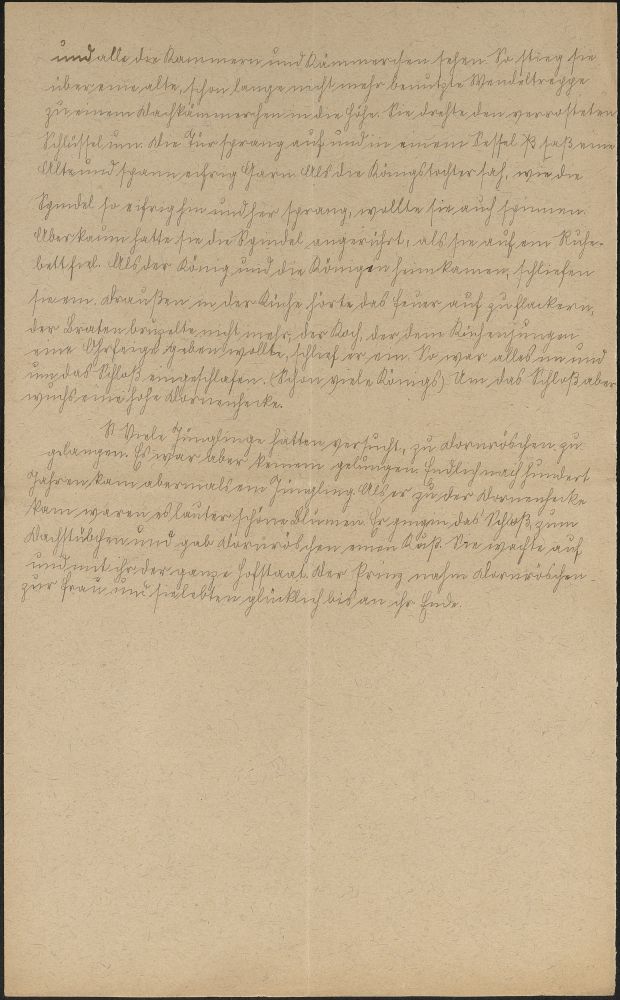 und alle die Kammern und Kämmerchen sehen. So stieg sie
über eine alte, schon lange nicht mehr benutzte Wendeltreppe
zu einem Dachkämmerchen in die Höhe. Sie drehte den verrosteten
Schlüssel um. Die Tür sprang auf und in einem Sessel saß eine
Alte und spann eifrig Garn. Als die Königstochter sah, wie die
Spindel so eifrig hin und her sprang, wollte sie auch spinnen.
Aber kaum hatte sie die Spindel angerührt, als sie auf ein Ruhe-
bett fiel. Als der König und die Königin heimkamen, schliefen
sie ein. Draußen in der Küche hörte das Feuer auf zu flackern,
der Braten brutzelte nicht mehr, der Koch, der dem Küchenjungen
eine Ohrfeige geben wollte, schlief er ein. So war alles um und
um das Schloß eingeschlafen. (Schon viele Königs) Um das Schloß aber
wuchs eine hohe Dornenhecke.
Viele Jünglinge hatten versucht, zu Dornröschen zu
gelangen. Es war aber keinem gelungen. Endlich nach hundert
Jahren kam abermals ein Jüngling. Als er zu der Dornenhecke
kam waren es lauter schöne Blumen. Er ging in das Schloß, zum
Dachstübchen und gab Dornröschen einen Kuß. Sie wachte auf
und mit ihr der ganze Hofstaat. Der Prinz nahm Dornröschen
zur Frau und sie lebten glücklich bis an ihr Ende.